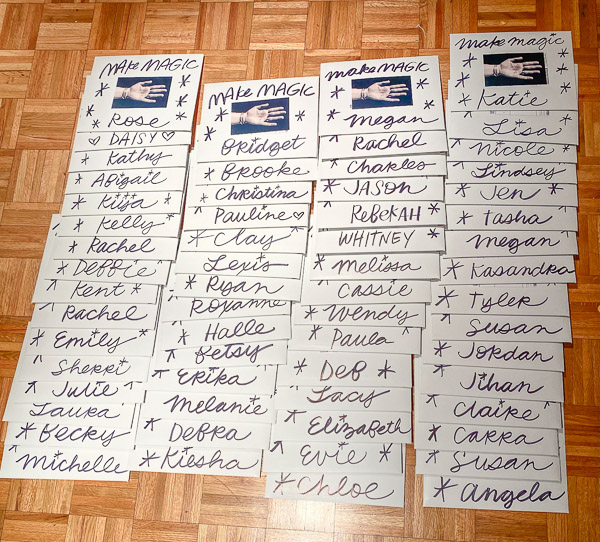 MAKE MAGIC
* Rose *
♡ DAISY ♡
* Kathy
Abigail
* Kijja *
* Kelly *
* Rachel
* Debbie ^
^ Kent *
Rachel
* Emily *
^ Sherri
^ Julie ^
Laura
* Becky
^ Michelle
MAKE MAGIC
Bridget
* Brooke
^ Christina
^ Pauline ♡
* Clay ^
Lexis
* Ryan
^ Roxanne
* Halle
^ Betsy
^ Erika ^
Melanie
* Debra
* Kiesha
make MAGIC
^ Megan
Rachel
^ Charles
* JASON
^ RebekAH *
WHITNEY *
* Melissa
^ Cassie
* Wendy
^ Paula ^
* DeB *
^ Lacy
ElizaBeth
^ Evie *
* Chloe
make magic
* Katie
^ Lisa *
^ Nicole *
^ Lindsey
* Jen *
* Tasha ^
^ megan
* Kasandra
* Tyler
^ Susan
* Jordan
^ Jihan
^ Claire ^
* CARRA
* Susan
* Angela